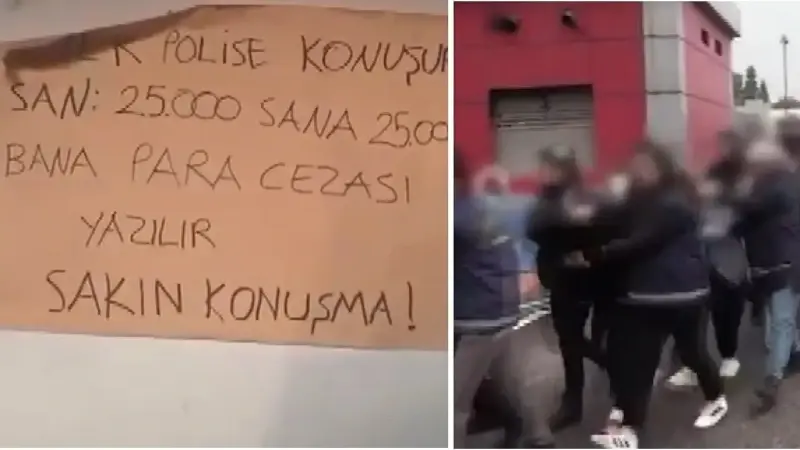 POLISE KONUŞUR
SAN: 25.000 SANA 25.00
BANA PARA CEZASI
YAZILIR
SAKIN KONUŞMA!